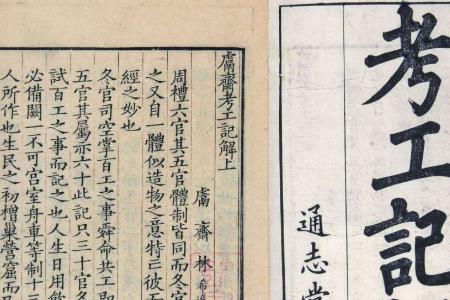 考工記
通志堂
鬳齋考工記解上
鬳齋林希逸
周禮六官其五官體制皆同而冬官
之又自一體似造物之意特亡彼五
經之妙也
冬官司空掌百工之事舜命共工即
五官其屬亦六十此記只三十官名
試百工之事而記之也人生日用飲
必備闕一不可宮室舟車等制十三
人所作也生民之初橧巢營窟而又